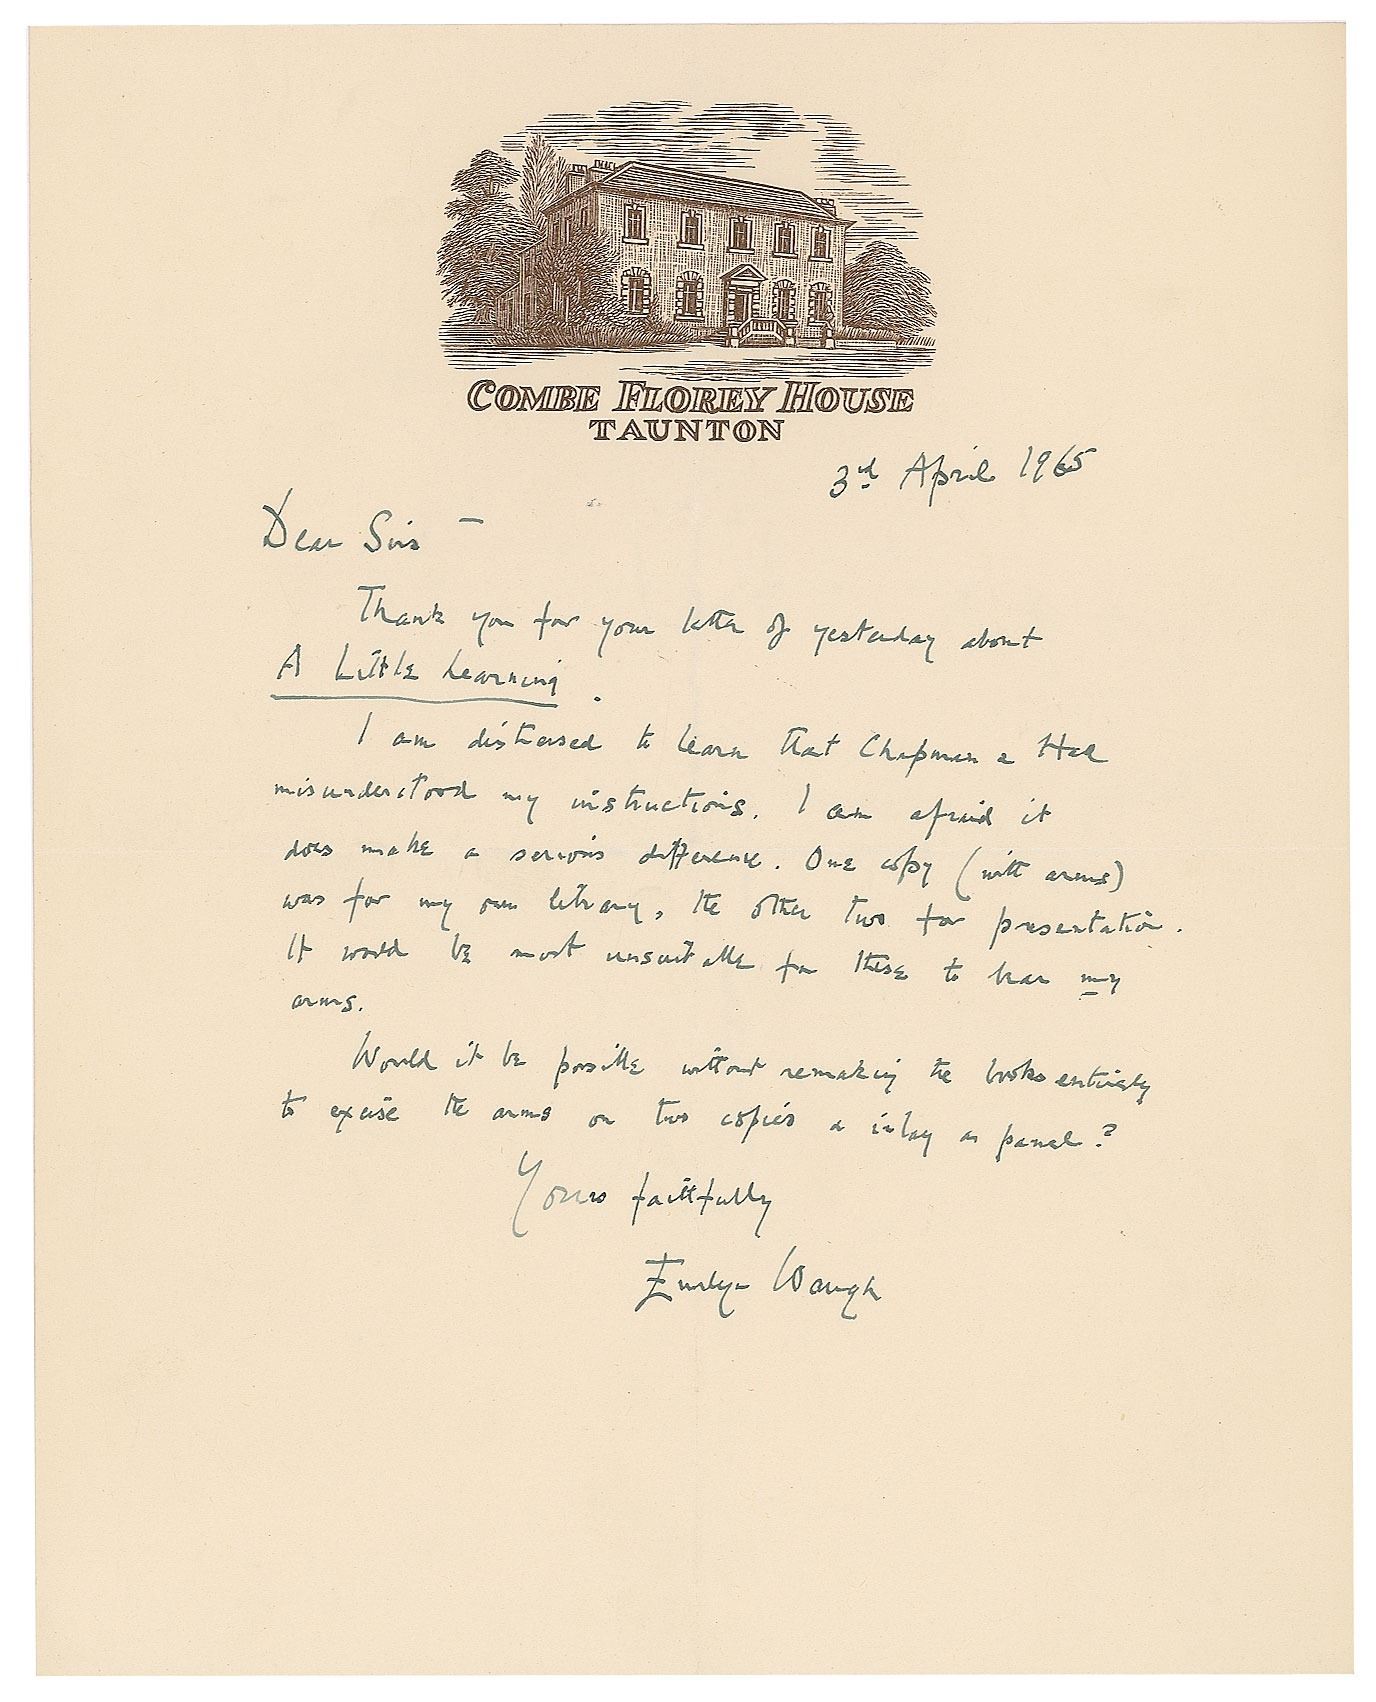 COMBE FLOREY HOUSE
TAUNTON
3rd April 1965
Dear Sirs –
Thank you for your letter of yesterday about
A Little Learning.
I am distressed to learn that Chapman & Hall
misunderstood my instructions. I am afraid it
does make a serious difference. One copy (with arms)
was for my own library, the other two for presentation.
It would be most unsuitable for these to bear my
arms.
Would it be possible without remaking the books entirely
to excise the arms on two copies & inlay a panel?
Yours faithfully
Evelyn Waugh